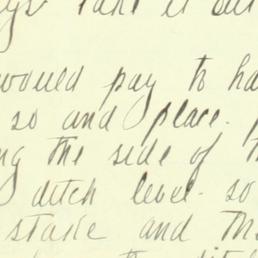 take it out
would pay to ha
so and place.
ng the side of th
ditch level. so
stake and th